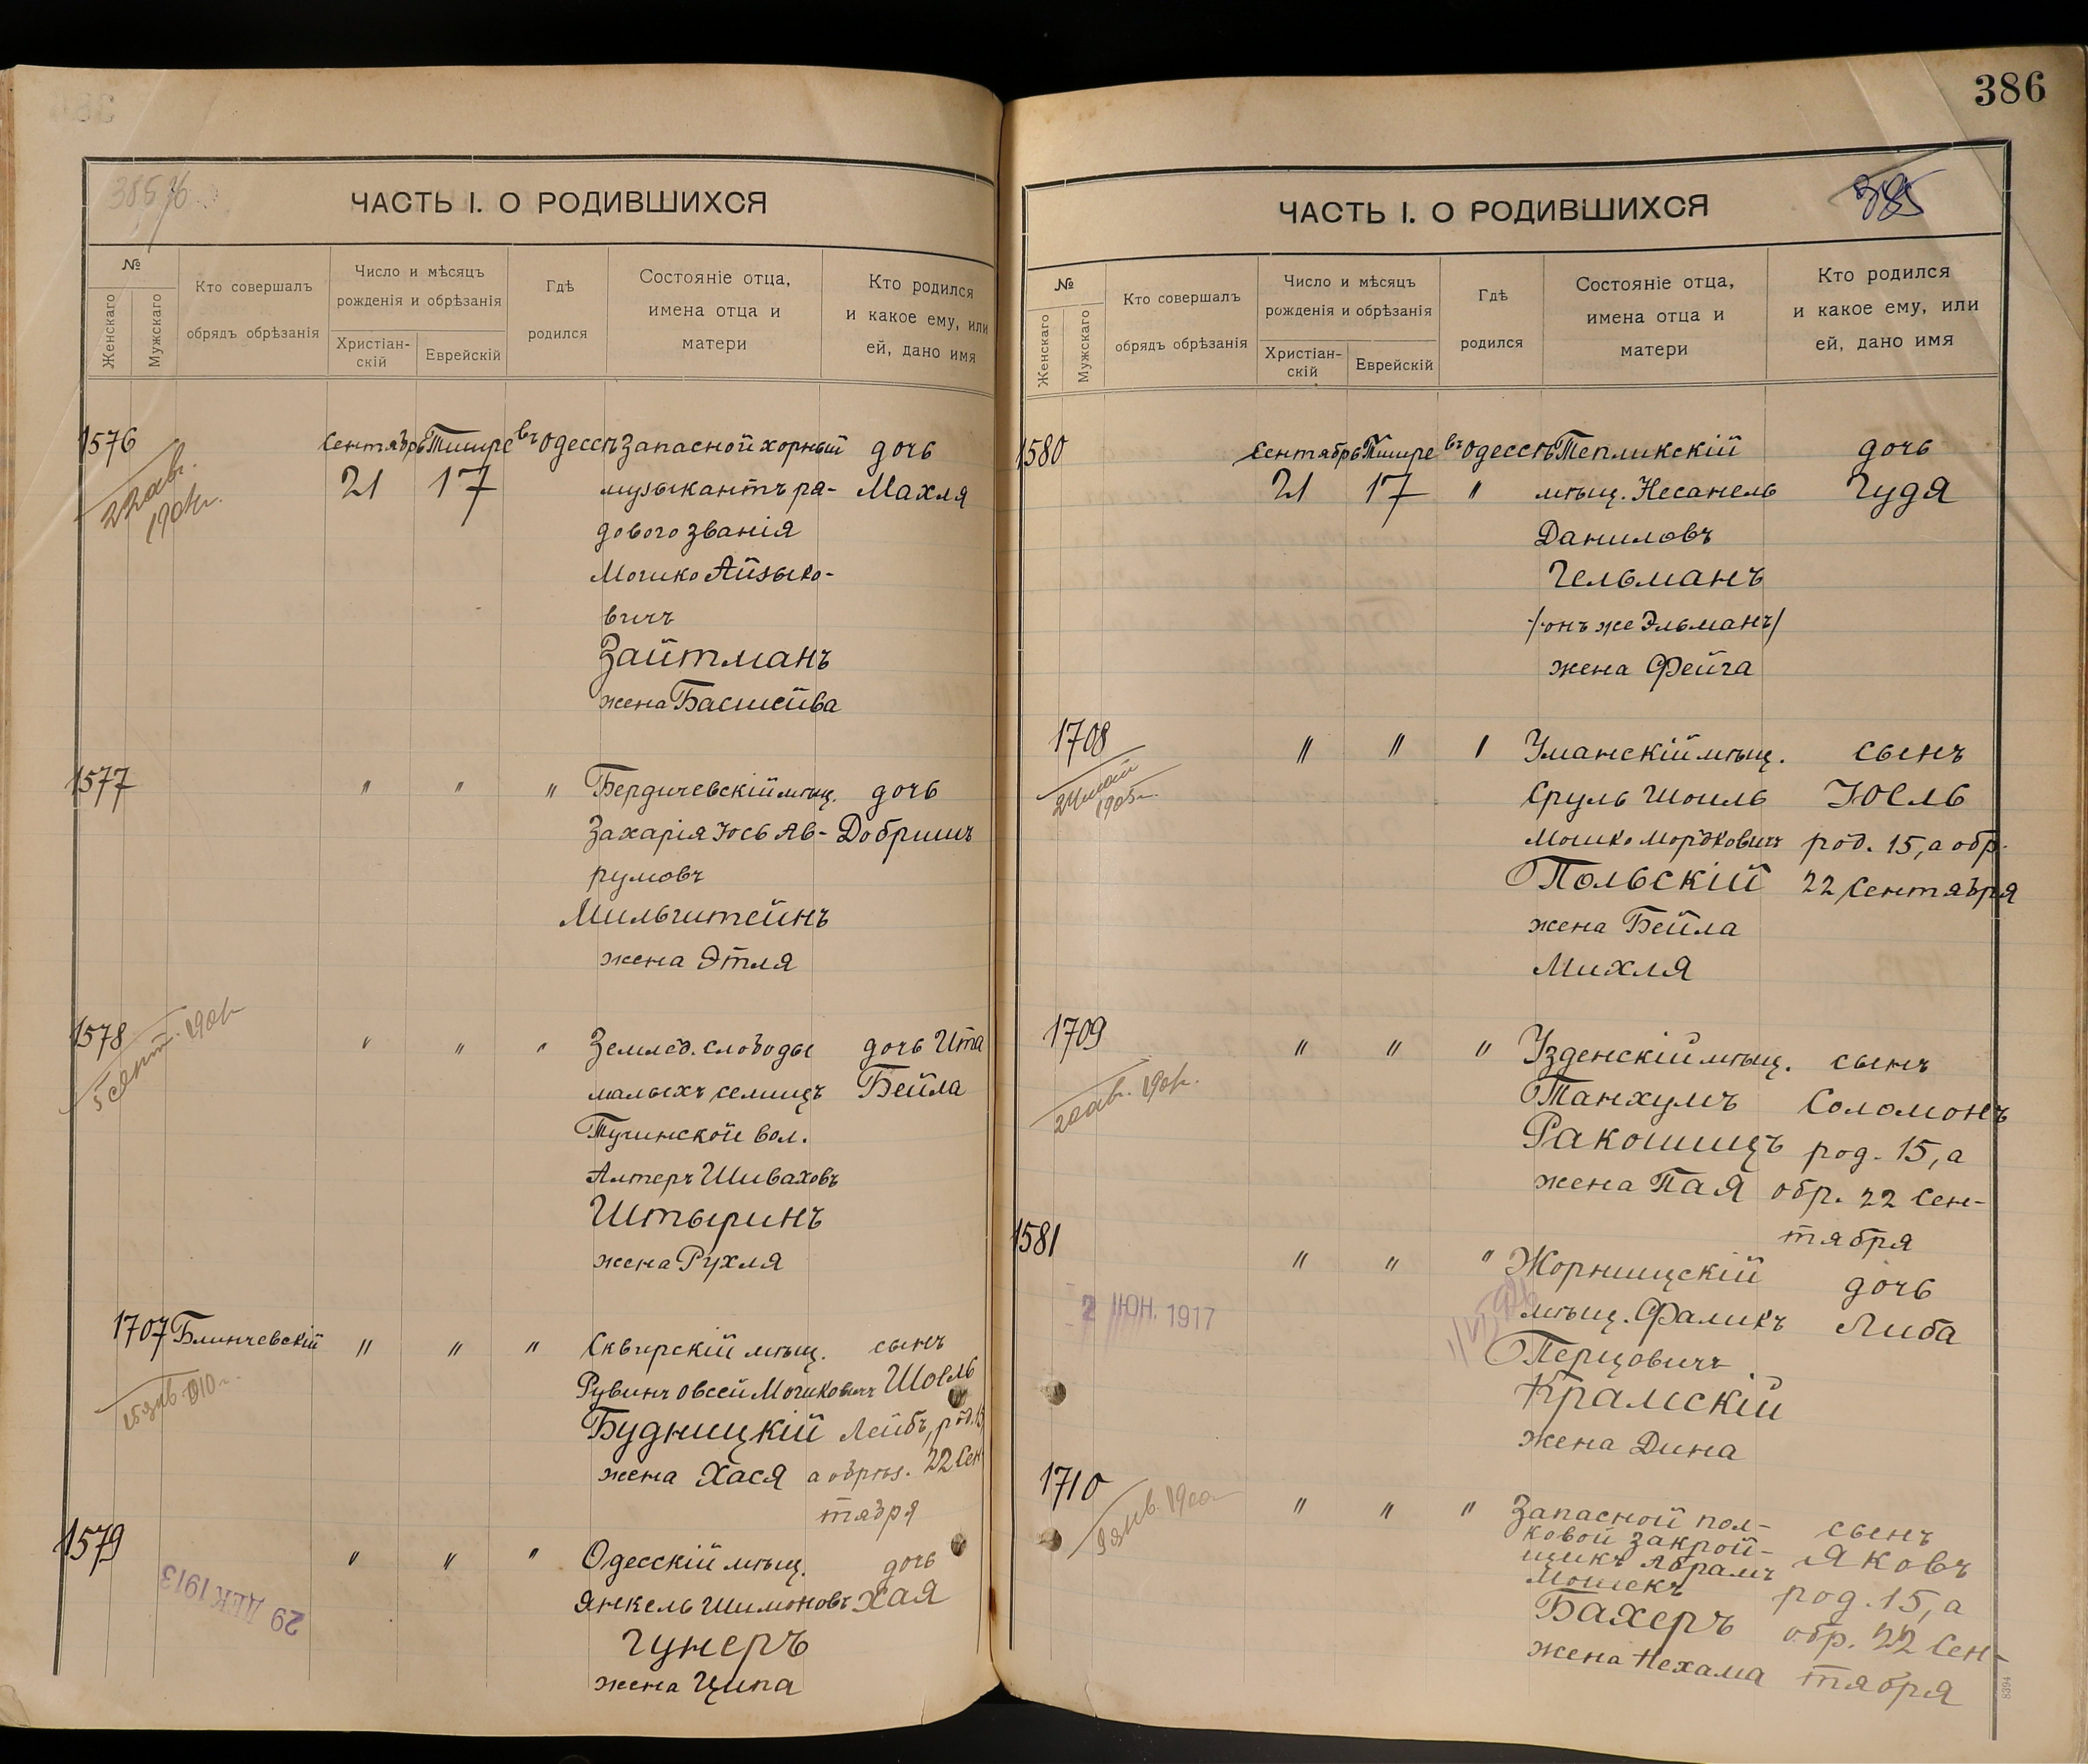 386
385
ЧАСТЬ I. О РОДИВШИХСЯ
№
Женскаго
Мужскаго
Кто совершалъ
обрядъ обрѣзанія
Число и мѣсяцъ
рожденія и обрѣзанія
Христіан-
скій
Еврейскій
Гдѣ
родился
Состояніе отца,
имена отца и
матери
Кто родился
и какое ему, или
ей, дано имя
1576
Сентябрь Тишре въ Одессѣ Запасной хорный дочь
21 17 музыкантъ ря- Махля
дового званія
Мошко Айзыко-
вичъ
Зайтманъ
жена Басшейва
1577 " " " Бердичевскій мѣщ. дочь
Захарія Іось Ав- Добришъ
румовъ
Мильштейнъ
жена Этля
1578 " " " Землед. слободы дочь Ита
5 сент. 1901 г.
малыхъ селищъ Бейла
Тучинской вол.
Алтеръ Шиваховъ
Штыринъ
жена Рухля
1707 Блинчевскій " " " Сквирскій мѣщ. сынъ
Рувинъ Овсей Мошковичъ Шоель
Будницкій Лейбъ, род. 15,
жена Хася а обрѣз. 22 Сен-
тября
1579 " " " Одесскій мѣщ. дочь
29 ДЕК 1913
Янкель Шимоновъ Хая
Гунеръ
жена Ципа
ЧАСТЬ I. О РОДИВШИХСЯ
385
№
Женскаго
Мужскаго
Кто совершалъ
обрядъ обрѣзанія
Число и мѣсяцъ
рожденія и обрѣзанія
Христіан-
скій
Еврейскій
Гдѣ
родился
Состояніе отца,
имена отца и
матери
Кто родился
и какое ему, или
ей, дано имя
1580 Сентябрь Тишре въ Одессѣ Тепликскій дочь
21 17 " мѣщ. Несанель Гудя
Даниловъ
Гельманъ
/онъ же Эльманъ/
жена Фейга
1708 " " " Уманскій мѣщ. сынъ
24 мая 1905 г.
Сруль Шоиль Іосль
Мошко Мордковичъ род. 15, а обр.
Польскій 22 Сентября
жена Бейла
Михля
1709 " " " Узденскій мѣщ. сынъ
Танхумъ Соломонъ
Ракошицъ род. 15, а
жена Пая обр. 22 Сен-
тября
1581 " " " Жорнищскій дочь
2 ІЮН. 1917
мѣщ. Фаликъ Либа
Перцовичъ
Крамскій
жена Дина
1710 " " " Запасной пол- сынъ
ковой закрой-
щикъ Абрамъ Яковъ
Мошекъ род. 15, а
Бахеръ обр. 22 Сен-
жена Нехама тября
8394